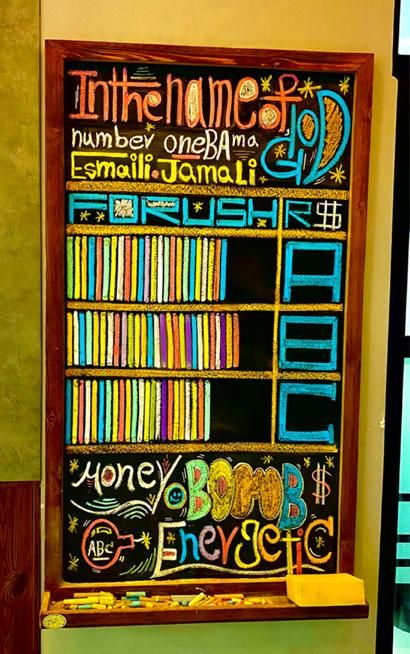 In the name of GOD
number oneBAma
Esmaili.Jamali
FORUSH R $
A
B
C
Money BOMB $
ABC Energetic